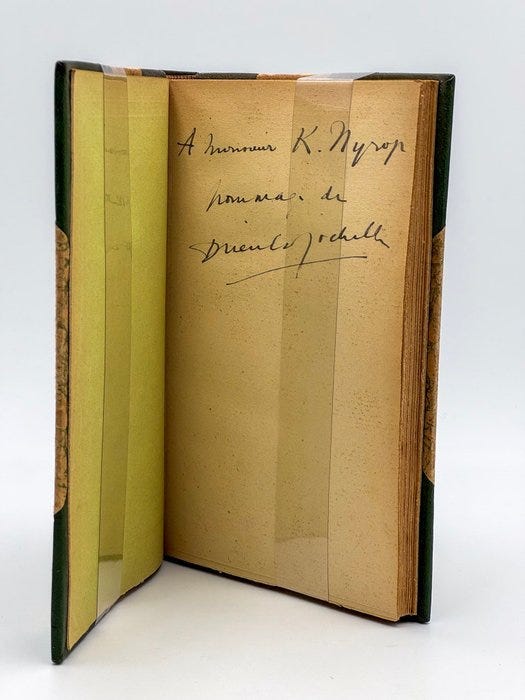 A Monsieur K. Nyrop
hommage de
Drieu La Rochelle